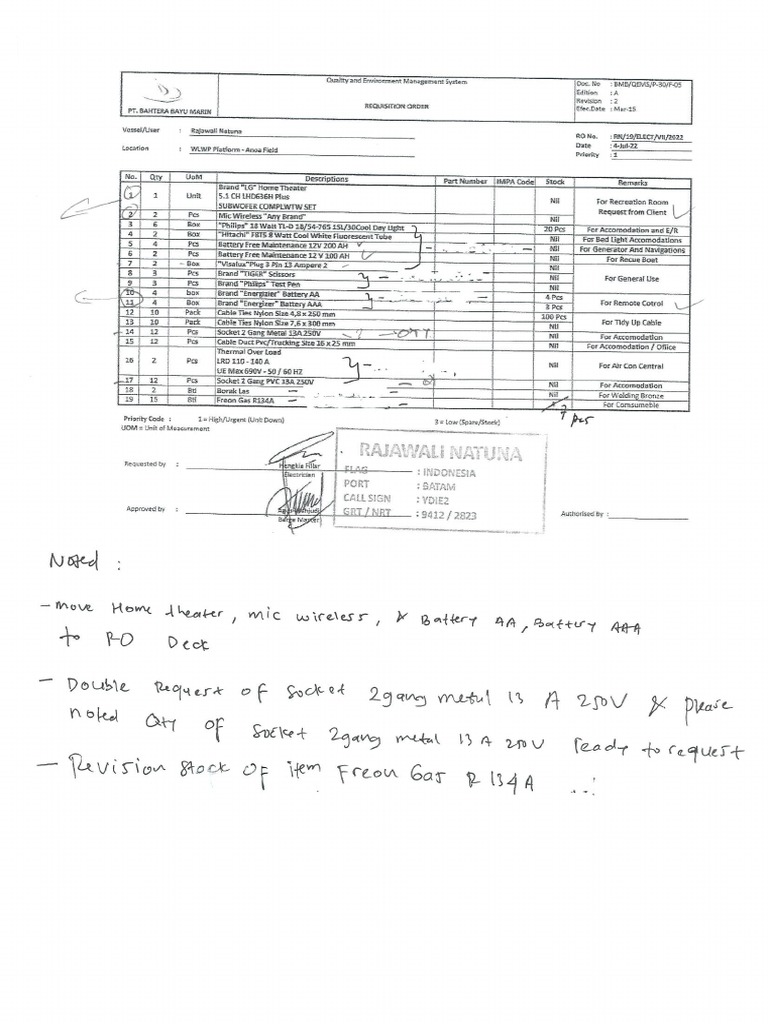 Quality and Environment Management System
REQUISITION ORDER
PT. BAHTERA BAYU MARIN
Doc. No : BMB/QEMS/P-30/F-05
Edition : A
Revision : 2
Efec.Date : Mar-15
Vessel/User : Rajawali Natuna
Location : WLWP Platform - Anoa Field
RO No. : RN/19/ELECT/VII/2022
Date : 4-Jul-22
Priority : 1
No. Qty UoM Descriptions Part Number IMPA Code Stock Remarks
1 1 Unit Brand "LG" Home Theater
5.1 CH LHD636H Plus
SUBWOFER COMPLWTW SET Nil For Recreation Room
Request from Client
2 2 Pcs Mic Wireless "Any Brand" Nil
3 6 Box "Philips" 18 Watt TL-D 18/54-765 1SL/30Cool Day Light 20 Pcs For Accomodation and E/R
4 2 Box "Hitachi" F8T5 8 Watt Cool White Fluorescent Tube Nil For Bed Light Accomodations
5 4 Pcs Battery Free Maintenance 12V 200 AH Nil For Generator And Navigations
6 2 Pcs Battery Free Maintenance 12 V 100 AH Nil For Recue Boat
7 2 Box "Visalux"Plug 3 Pin 13 Ampere 2 Nil
8 3 Pcs Brand "TIGER" Scissors Nil For General Use
9 3 Pcs Brand "Philips" Test Pen Nil
10 4 box Brand "Energizer" Battery AA 4 Pcs For Remote Cotrol
11 4 Box Brand "Energizer" Battery AAA 8 Pcs
12 10 Pack Cable Ties Nylon Size 4,8 x 250 mm 100 Pcs For Tidy Up Cable
13 10 Pack Cable Ties Nylon Size 7,6 x 300 mm Nil
14 12 Pcs Socket 2 Gang Metal 13A 250V Nil For Accomodation
15 12 Pcs Cable Duct Pvc/Trucking Size 16 x 25 mm Nil For Accomodation / Office
16 2 Pcs Thermal Over Load
LRD 110 - 140 A
UE Max 690V - 50 / 60 HZ Nil For Air Con Central
17 12 Pcs Socket 2 Gang PVC 13A 250V Nil For Accomodation
18 2 Btl Borak Las Nil For Welding Bronze
19 15 Btl Freon Gas R134A Nil For Comsumeble
7 pcs
Priority Code : 1 = High/Urgent (Unit Down) 3 = Low (Spare/Stock)
UOM = Unit of Measurement
RAJAWALI NATUNA
FLAG : INDONESIA
PORT : BATAM
CALL SIGN : YDIE2
GRT / NRT : 9412 / 2823
Requested by :
Electrician
Approved by :
Barge Master
Authorised By :
Noted :
- Move Home theater, mic wireless, & Battery AA, Battery AAA
to RO Deck
- Double Request of Socket 2gang metal 13 A 250V & please
noted Qty of Socket 2gang metal 13 A 250V ready to request
- Revision Stock Of item Freon Gas R 134A ...!